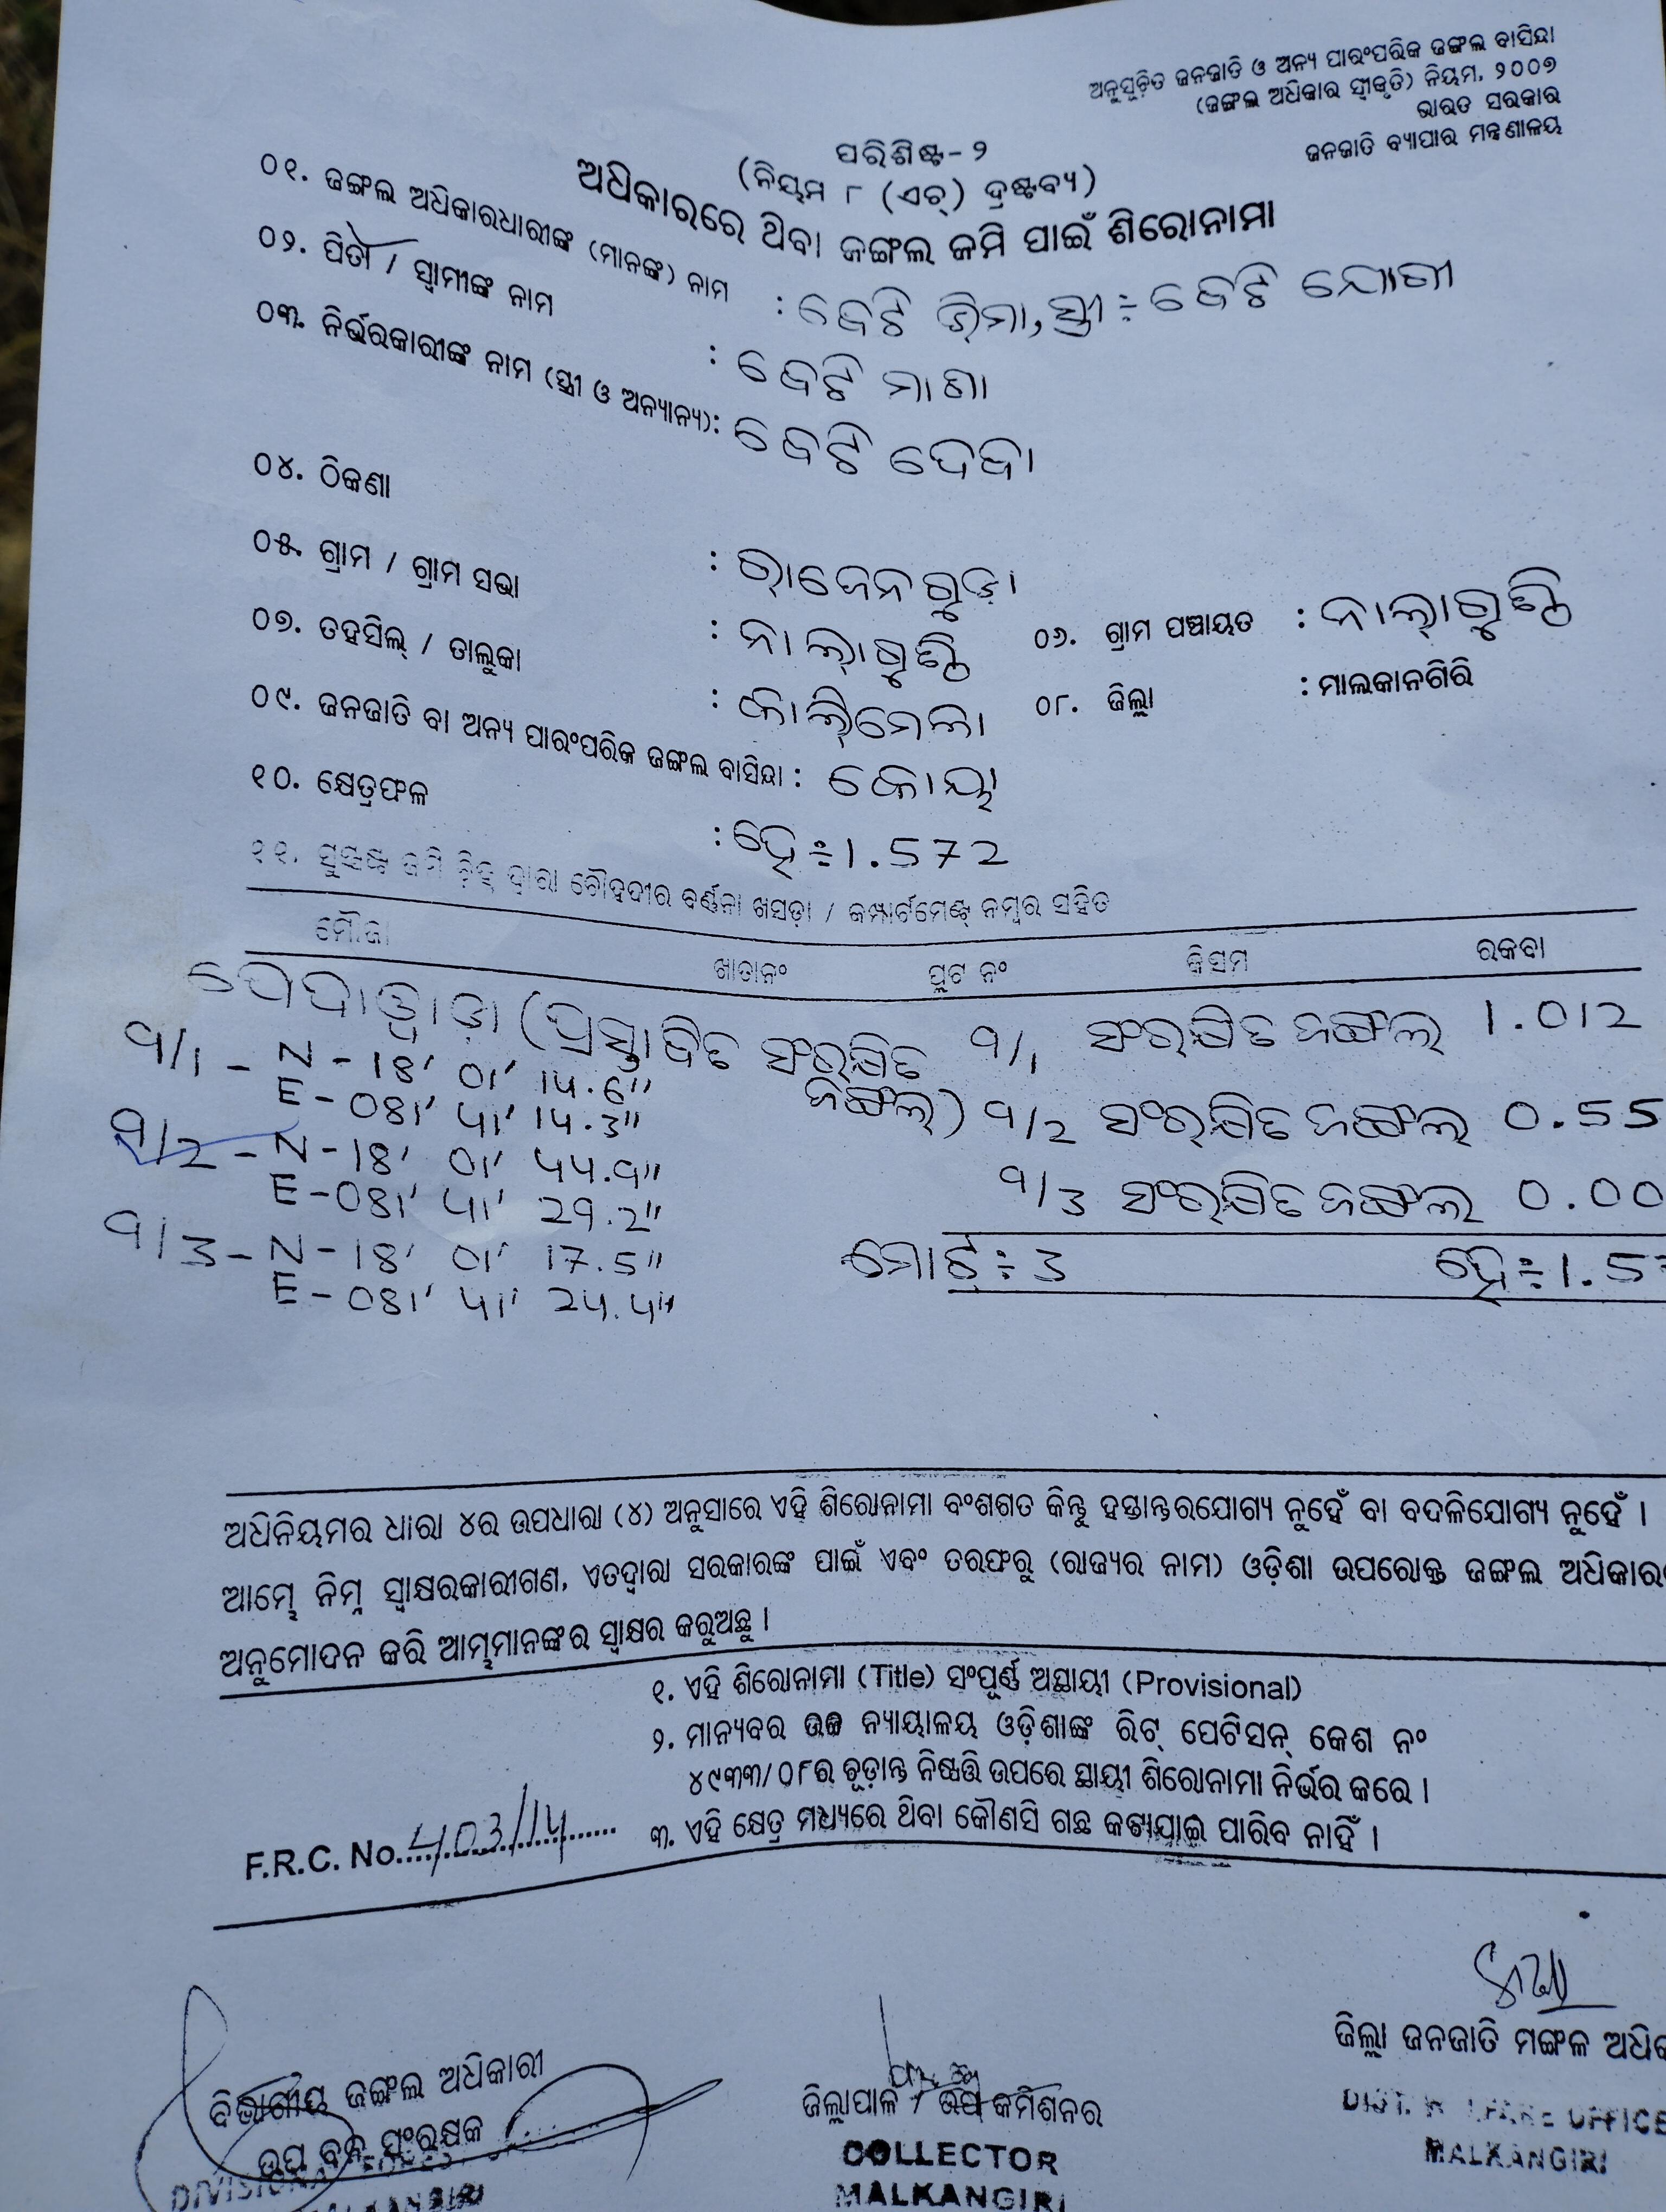 ଅନୁସୂଚିତ ଜନଜାତି ଓ ଅନ୍ୟ ପାରଂପରିକ ଜଙ୍ଗଲ ବାସିନ୍ଦା
(ଜଙ୍ଗଲ ଅଧିକାର ସ୍ୱୀକୃତି) ନିୟମ, ୨୦୦୭
ଭାରତ ସରକାର
ଜନଜାତି ବ୍ୟାପାର ମନ୍ତ୍ରଣାଳୟ
ପରିଶିଷ୍ଟ-୨
(ନିୟମ ୮ (ଏଚ୍) ଦ୍ରଷ୍ଟବ୍ୟ)
ଅଧିକାରରେ ଥିବା ଜଙ୍ଗଲ ଜମି ପାଇଁ ଶିରୋନାମା
୦୧. ଜଙ୍ଗଲ ଅଧିକାରଧାରୀଙ୍କ (ମାନଙ୍କ) ନାମ : ବେଟି ଭିମା, ସ୍ତ୍ରୀ ÷ ବେଟି ଯୋଗୀ
୦୨. ପିତା / ସ୍ୱାମୀଙ୍କ ନାମ : ବେଟି ମାସା
୦୩. ନିର୍ଭରକାରୀଙ୍କ ନାମ (ସ୍ତ୍ରୀ ଓ ଅନ୍ୟାନ୍ୟ): ବେଟି ଦେବା
୦୪. ଠିକଣା : ରାଜେନଗୁଡ଼ା
୦୫. ଗ୍ରାମ / ଗ୍ରାମ ସଭା : ନାଲାଗୁଣ୍ଠି ୦୬. ଗ୍ରାମ ପଞ୍ଚାୟତ : ନାଲାଗୁଣ୍ଠି
୦୭. ତହସିଲ୍ / ତାଲୁକା : କାଲିମେଲା ୦୮. ଜିଲ୍ଲା : ମାଲକାନଗିରି
୦୯. ଜନଜାତି ବା ଅନ୍ୟ ପାରଂପରିକ ଜଙ୍ଗଲ ବାସିନ୍ଦା : କୋୟା
୧୦. କ୍ଷେତ୍ରଫଳ : ହେ÷1.572
୧୧. ସୁସ୍ପଷ୍ଟ ଜମି ଚିହ୍ନ ଦ୍ୱାରା ଚୌହଦୀର ବର୍ଣ୍ଣନା ଖସଡ଼ା / କମ୍ପାର୍ଟମେଣ୍ଟ ନମ୍ବର ସହିତ
ମୌଜା ଖାତାନଂ ପ୍ଲଟ ନଂ କିସମ ରକବା
(ପ୍ରସ୍ତାବିତ ସଂରକ୍ଷିତ ଜଙ୍ଗଲ) 9/1 ସଂରକ୍ଷିତ ଜଙ୍ଗଲ 1.012
9/1 - N - 18' 01' 14.6"
E - 081' 41' 14.3" 9/2 ସଂରକ୍ଷିତ ଜଙ୍ଗଲ 0.55
9/2 - N - 18' 01' 44.9"
E - 081' 41' 29.2" 9/3 ସଂରକ୍ଷିତ ଜଙ୍ଗଲ 0.00
9/3 - N - 18' 01' 17.5" ମୋଟ ÷ 3 ହେ÷1.57
E - 081' 41' 24.4"
ଅଧିନିୟମର ଧାରା ୪ର ଉପଧାରା (୪) ଅନୁସାରେ ଏହି ଶିରୋନାମା ବଂଶଗତ କିନ୍ତୁ ହସ୍ତାନ୍ତରଯୋଗ୍ୟ ନୁହେଁ ବା ବଦଳିଯୋଗ୍ୟ ନୁହେଁ ।
ଆମ୍ଭେ ନିମ୍ନ ସ୍ୱାକ୍ଷରକାରୀଗଣ, ଏତଦ୍ୱାରା ସରକାରଙ୍କ ପାଇଁ ଏବଂ ତରଫରୁ (ରାଜ୍ୟର ନାମ) ଓଡ଼ିଶା ଉପରୋକ୍ତ ଜଙ୍ଗଲ ଅଧିକାର
ଅନୁମୋଦନ କରି ଆମ୍ଭମାନଙ୍କର ସ୍ୱାକ୍ଷର କରୁଅଛୁ ।
୧. ଏହି ଶିରୋନାମା (Title) ସଂପୂର୍ଣ୍ଣ ଅସ୍ଥାୟୀ (Provisional)
୨. ମାନ୍ୟବର ଉଚ୍ଚ ନ୍ୟାୟାଳୟ ଓଡ଼ିଶାଙ୍କ ରିଟ୍ ପେଟିସନ୍ କେଶ ନଂ
୪୯୩୩/୦୮ର ଚୂଡ଼ାନ୍ତ ନିଷ୍ପତ୍ତି ଉପରେ ସ୍ଥାୟୀ ଶିରୋନାମା ନିର୍ଭର କରେ ।
୩. ଏହି କ୍ଷେତ୍ର ମଧ୍ୟରେ ଥିବା କୌଣସି ଗଛ କଟାଯାଇ ପାରିବ ନାହିଁ ।
F.R.C. No. 403/14
ବିଭାଗୀୟ ଜଙ୍ଗଲ ଅଧିକାରୀ
ଉପ ବନ ସଂରକ୍ଷକ
ଜିଲ୍ଲାପାଳ / ଉପ କମିଶନର
COLLECTOR
MALKANGIRI
ଜିଲ୍ଲା ଜନଜାତି ମଙ୍ଗଳ ଅଧିକ
DIST. WELFARE OFFICE
MALKANGIRI